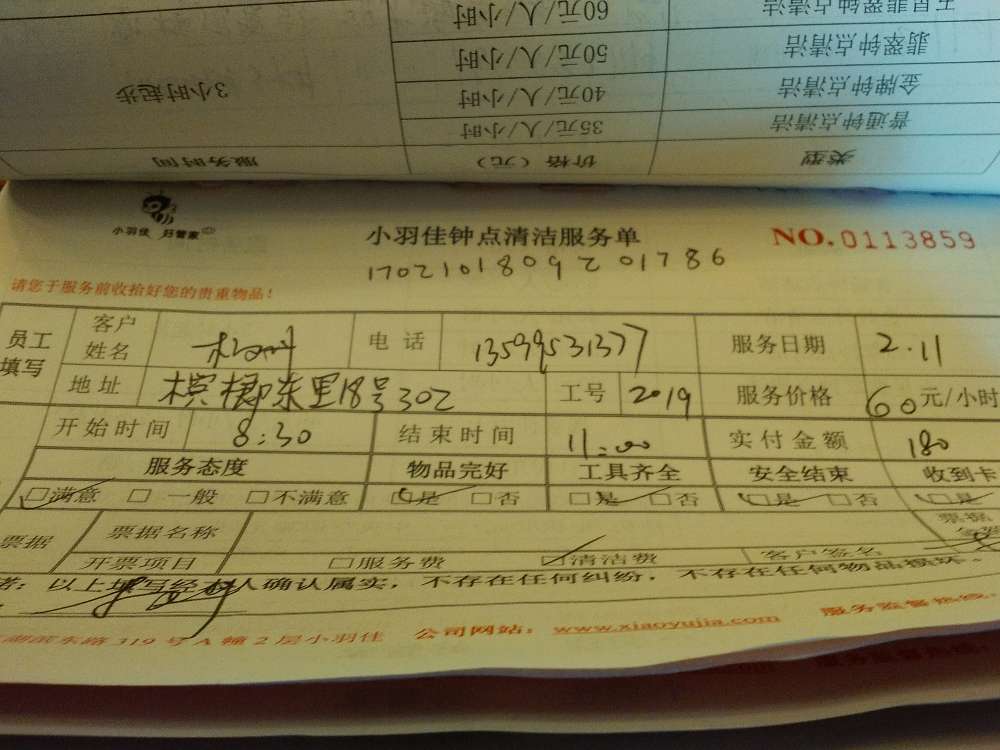 五星翡翠钟点清洁 60元/人/小时
翡翠钟点清洁 50元/人/小时
金牌钟点清洁 40元/人/小时 3小时起步
普通钟点清洁 35元/人/小时
类型 价格(元) 服务时间
小羽佳 好管家
小羽佳钟点清洁服务单 NO.0113859
17021018092 01786
请您于服务前收拾好您的贵重物品!
员工填写 客户姓名 电话 13599531377 服务日期 2.11
地址 槟榔东里18号302 工号 2019 服务价格 60元/小时
开始时间 8:30 结束时间 11:00 实付金额 180
服务态度 物品完好 工具齐全 安全结束 收到卡
□满意 □一般 □不满意 □是 □否 □是 □否 □是 □否 □是
票据 票据名称 票据
开票项目 □服务费 □清洁费 客户签名
以上填写经本人确认属实,不存在任何纠纷,不存在任何物品损坏。
湖滨东路319号A幢2层小羽佳 公司网站:www.xiaoyujia.com 服务监督热线: